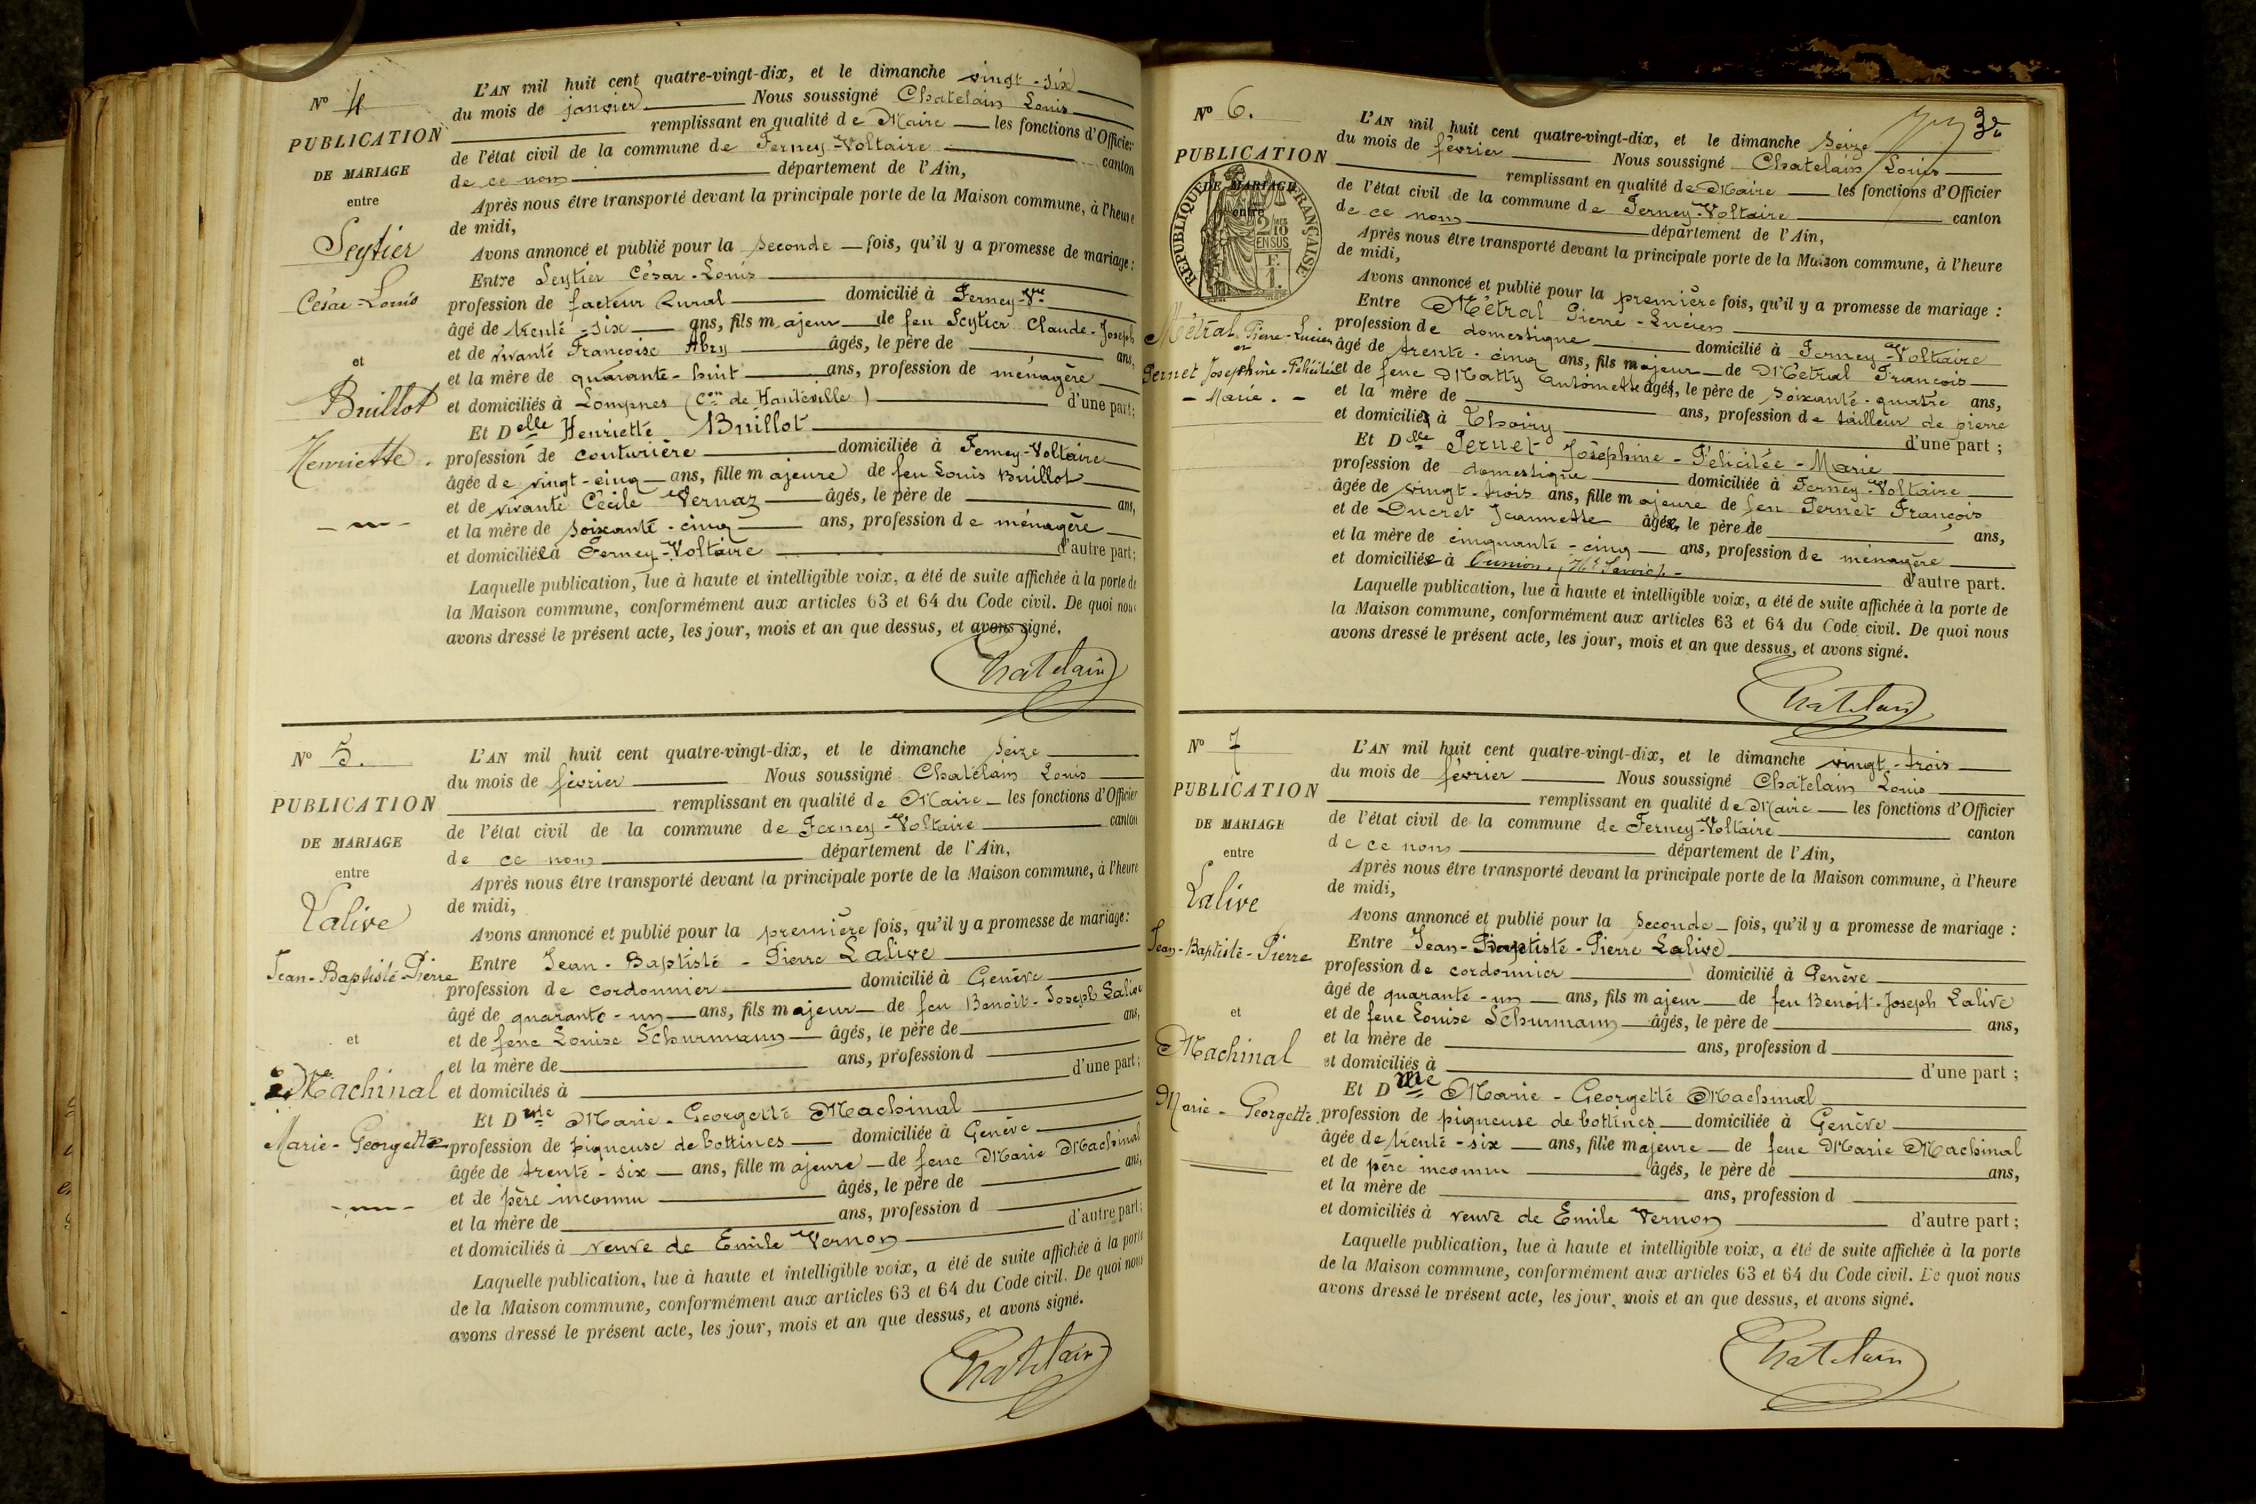 N° 4
PUBLICATION
DE MARIAGE
entre
Seytier
César-Louis
et
Buillot
Henriette.
L'AN mil huit cent quatre-vingt-dix, et le dimanche vingt-six
du mois de janvier Nous soussigné Chatelain Louis
remplissant en qualité de Maire les fonctions d'Officier
de l'état civil de la commune de Ferney-Voltaire canton
de ce nom département de l'Ain,
Après nous être transporté devant la principale porte de la Maison commune, à l'heure
de midi,
Avons annoncé et publié pour la seconde fois, qu'il y a promesse de mariage:
Entre Seytier César-Louis
profession de facteur Rural domicilié à Ferney-Vre
âgé de trente-six ans, fils majeur de feu Seytier Claude-Joseph
et de vivante Françoise Abry âgés, le père de ans,
et la mère de quarante-huit ans, profession de ménagère
et domiciliés à Lompnes (Con de Hauteville) d'une part;
Et Delle Henriette Buillot
profession de couturière domiciliée à Ferney-Voltaire
âgée de vingt-cinq ans, fille majeure de feu Louis Buillot
et de vivante Cécile Vernaz âgés, le père de ans,
et la mère de soixante-cinq ans, profession de ménagère
et domiciliée à Ferney-Voltaire d'autre part;
Laquelle publication, lue à haute et intelligible voix, a été de suite affichée à la porte de
la Maison commune, conformément aux articles 63 et 64 du Code civil. De quoi nous
avons dressé le présent acte, les jour, mois et an que dessus, et avons signé.
Chatelain
N° 5.
PUBLICATION
DE MARIAGE
entre
Lalive
Jean-Baptiste-Pierre
et
Machinal
Marie-Georgette
L'AN mil huit cent quatre-vingt-dix, et le dimanche seize
du mois de février Nous soussigné Chatelain Louis
remplissant en qualité de Maire les fonctions d'Officier
de l'état civil de la commune de Ferney-Voltaire canton
de ce nom département de l'Ain,
Après nous être transporté devant la principale porte de la Maison commune, à l'heure
de midi,
Avons annoncé et publié pour la première fois, qu'il y a promesse de mariage:
Entre Jean-Baptiste-Pierre Lalive
profession de cordonnier domicilié à Genève
âgé de quarante-un ans, fils majeur de feu Benoit-Joseph Lalive
et de feue Louise Schurmann âgés, le père de ans,
et la mère de ans, profession d
et domiciliés à d'une part;
Et Dme Marie-Georgette Machinal
profession de piqueuse de bottines domiciliée à Genève
âgée de trente-six ans, fille majeure de feue Marie Machinal
et de père inconnu âgés, le père de ans,
et la mère de ans, profession d
et domiciliés à veuve de Emile Vernon d'autre part;
Laquelle publication, lue à haute et intelligible voix, a été de suite affichée à la porte
de la Maison commune, conformément aux articles 63 et 64 du Code civil. De quoi nous
avons dressé le présent acte, les jour, mois et an que dessus, et avons signé.
Chatelain
N° 6.
PUBLICATION
DE MARIAGE
entre
RÉPUBLIQUE FRANÇAISE
2/10
EN SUS
F.
1.
Métral Pierre-Lucien
et
Pernet Joséphine-Félicitée
- Marie. -
L'AN mil huit cent quatre-vingt-dix, et le dimanche seize
du mois de février Nous soussigné Chatelain Louis
remplissant en qualité de Maire les fonctions d'Officier
de l'état civil de la commune de Ferney-Voltaire canton
de ce nom département de l'Ain,
Après nous être transporté devant la principale porte de la Maison commune, à l'heure
de midi,
Avons annoncé et publié pour la première fois, qu'il y a promesse de mariage :
Entre Métral Pierre-Lucien
profession de domestique domicilié à Ferney-Voltaire
âgé de trente-cinq ans, fils majeur de Métral François
et de feue Matty Antoinette âgés, le père de soixante-quatre ans,
et la mère de ans, profession de tailleur de pierre
et domicilié à Thoiry d'une part ;
Et Delle Pernet Joséphine-Félicitée-Marie
profession de domestique domiciliée à Ferney-Voltaire
âgée de vingt-trois ans, fille majeure de feu Pernet François
et de Ducret Jeannette âgés, le père de ans,
et la mère de cinquante-cinq ans, profession de ménagère
et domiciliée à (Hte Savoie). d'autre part.
Laquelle publication, lue à haute et intelligible voix, a été de suite affichée à la porte de
la Maison commune, conformément aux articles 63 et 64 du Code civil. De quoi nous
avons dressé le présent acte, les jour, mois et an que dessus, et avons signé.
Chatelain
N° 7
PUBLICATION
DE MARIAGE
entre
Lalive
Jean-Baptiste-Pierre
et
Machinal
Marie-Georgette
L'AN mil huit cent quatre-vingt-dix, et le dimanche vingt-trois
du mois de février Nous soussigné Chatelain Louis
remplissant en qualité de Maire les fonctions d'Officier
de l'état civil de la commune de Ferney-Voltaire canton
de ce nom département de l'Ain,
Après nous être transporté devant la principale porte de la Maison commune, à l'heure
de midi,
Avons annoncé et publié pour la seconde fois, qu'il y a promesse de mariage :
Entre Jean-Baptiste-Pierre Lalive
profession de cordonnier domicilié à Genève
âgé de quarante-un ans, fils majeur de feu Benoit-Joseph Lalive
et de feue Louise Schurmann âgés, le père de ans,
et la mère de ans, profession d
et domiciliés à d'une part ;
Et Dme Marie-Georgette Machinal
profession de piqueuse de bottines domiciliée à Genève
âgée de trente-six ans, fille majeure de feue Marie Machinal
et de père inconnu âgés, le père de ans,
et la mère de ans, profession d
et domiciliés à veuve de Emile Vernon d'autre part ;
Laquelle publication, lue à haute et intelligible voix, a été de suite affichée à la porte
de la Maison commune, conformément aux articles 63 et 64 du Code civil. De quoi nous
avons dressé le présent acte, les jour, mois et an que dessus, et avons signé.
Chatelain